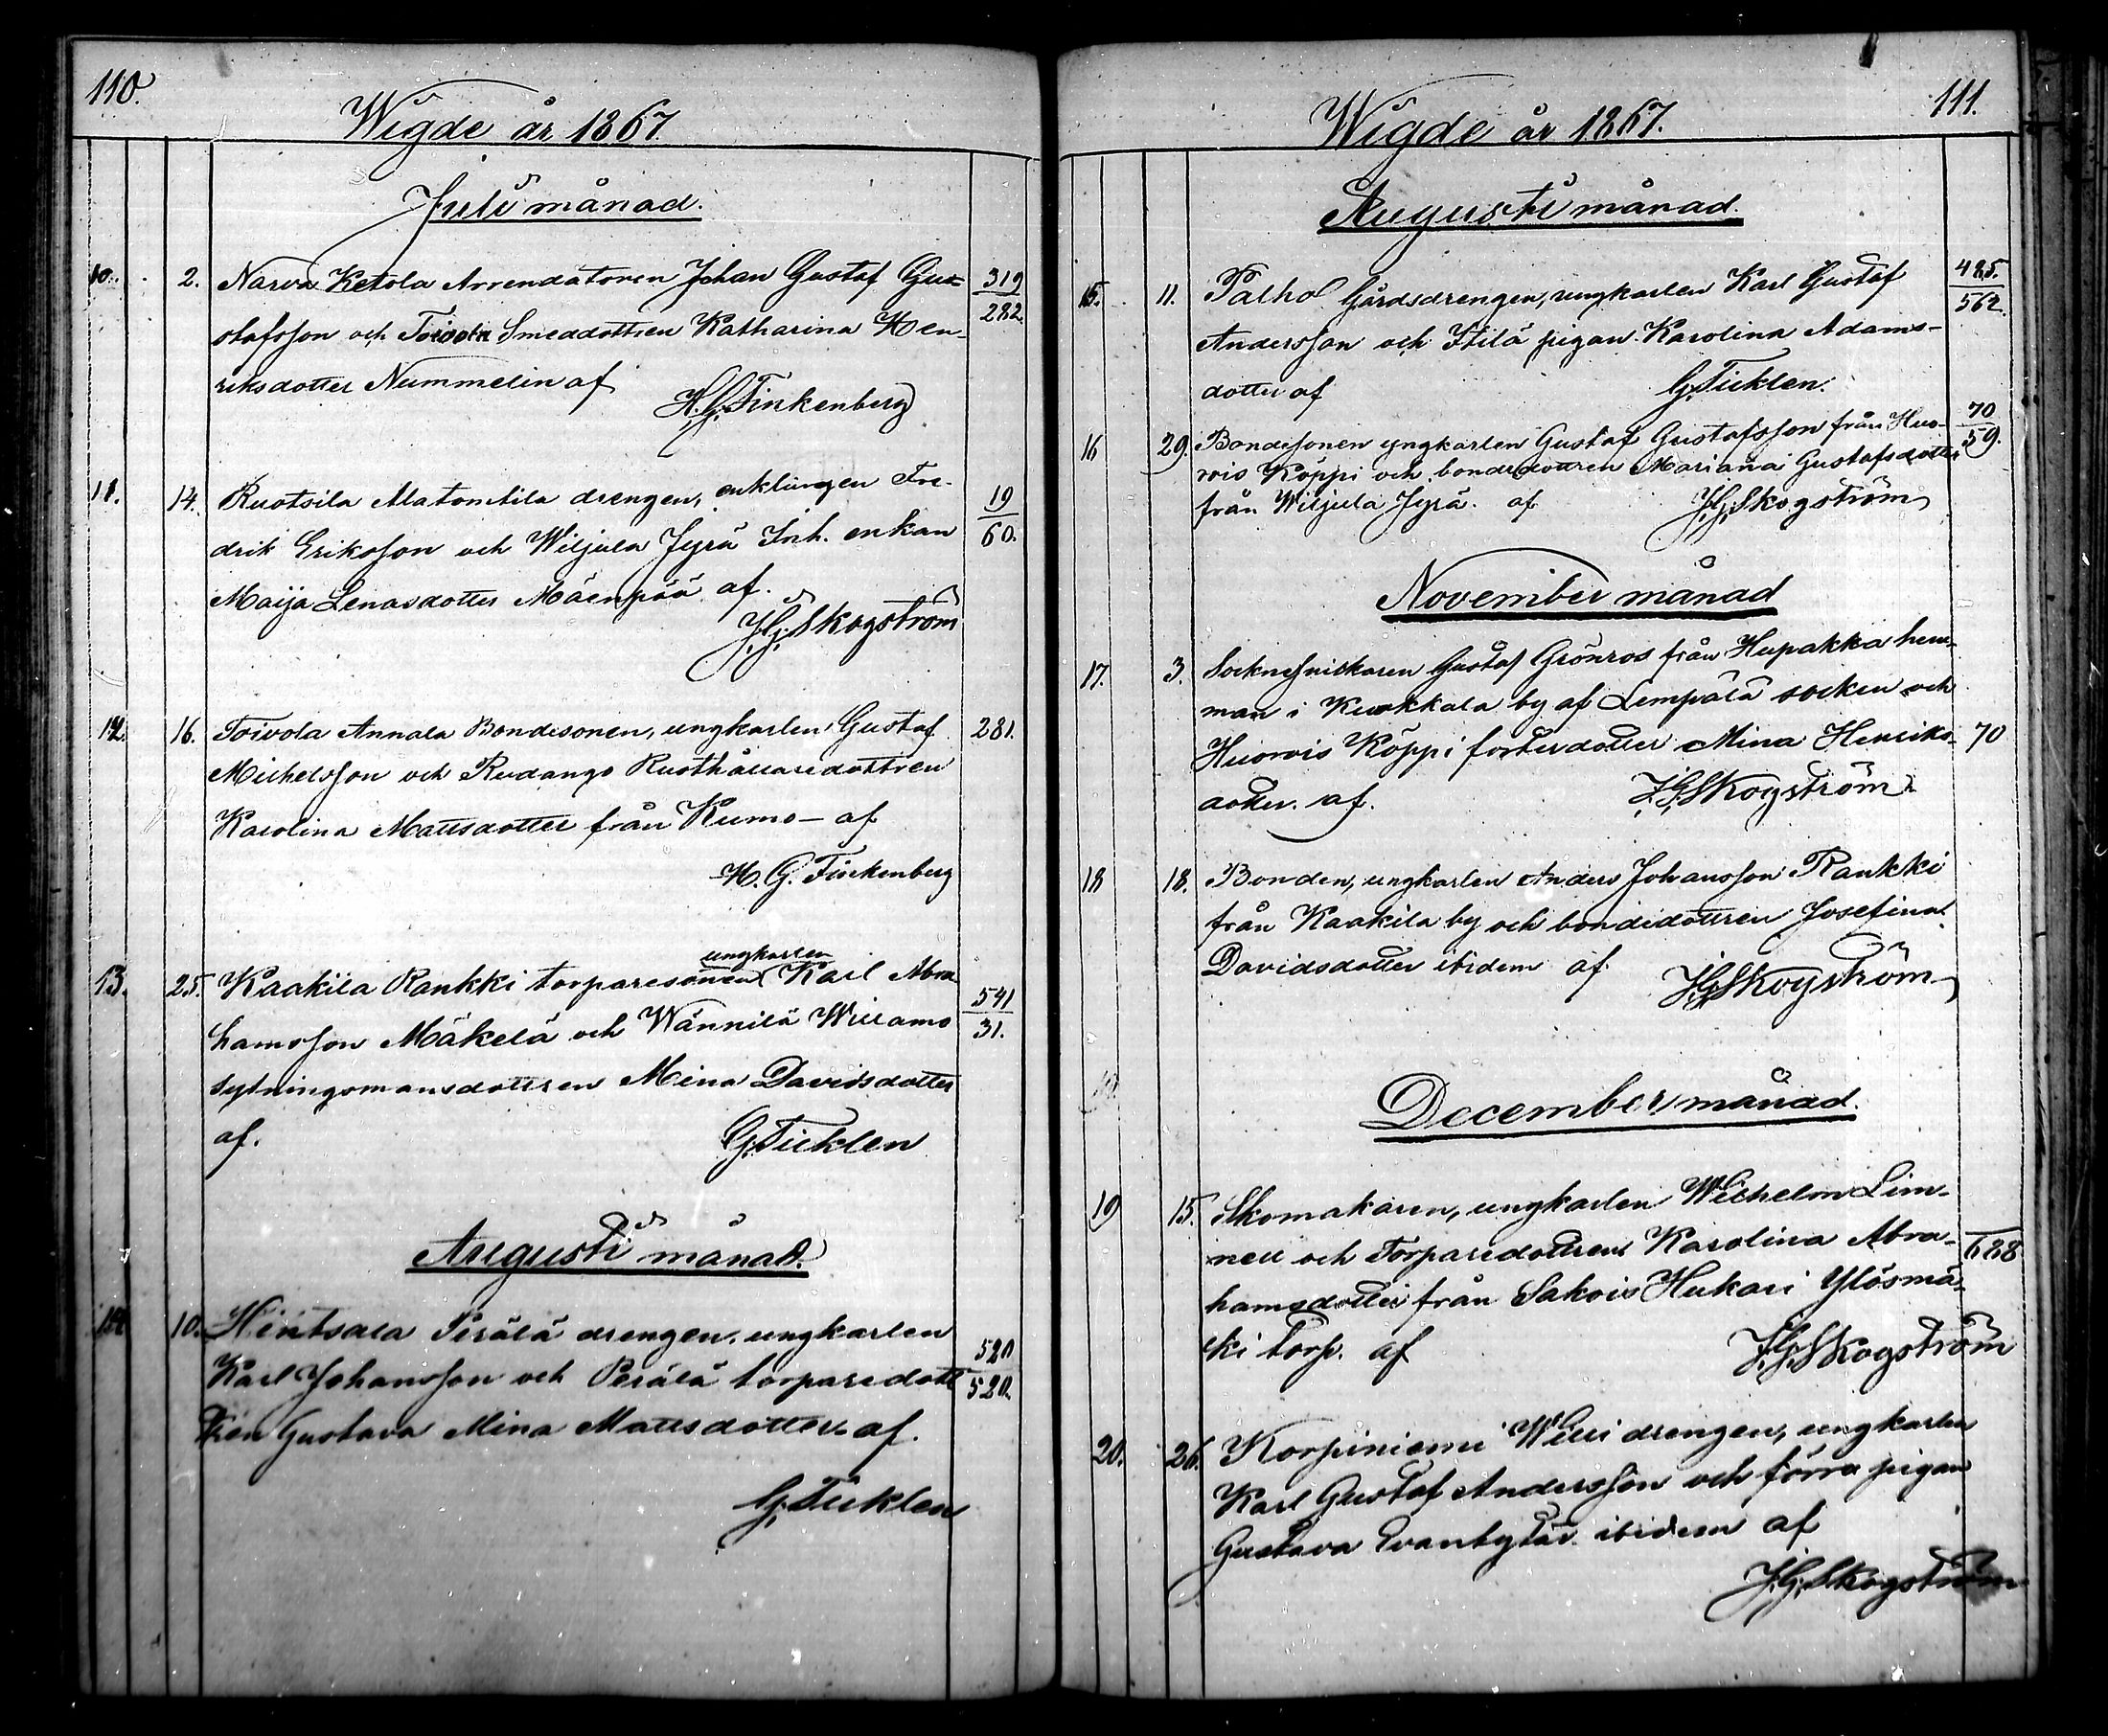 110.
Wigde år 1867.
Juli månad.
10. 2. Narva Ketola Arrendatoren Johan Gustaf Gus- 319
stafsson och Toivola Smeddottren Katharina Hen- 282.
riksdotter Nummelin af
H. G. Finkenberg
11. 14. Ruotsila Alatomtila drengen, enklingen Fre- 19
drik Eriksson och Wiljula Jyrä Inh. enkan 60.
Maija Lenasdotter Mäenpää af.
J. G. Skogström
12. 16. Toivola Annala Bondesonen, ungkarlen Gustaf 281.
Michelsson och Rudango Rusthållaredottren
Karolina Mattsdotter från Kumo – af
H. G. Finkenberg
ungkarlen
13. 25. Kaakila Rankki torparesonen Karl Abra 541
hamsson Mäkelä och Wännilä Willamo 31.
sytningsmansdottren Mina Davidsdotter
af. G. Ticklen
Augusti månad.
14. 10. Hintsala Perälä drengen, ungkarlen
Karl Johansson och Perälä torparedott 520
ren Gustava Mina Mattsdotter af. 520.
G. Ticklen
111.
Wigde år 1867.
Augusti månad.
15. 11. Palho Gårdsdrengen, ungkarlen Karl Gustaf 485.
Andersson och Itilä pigan Karolina Adams- 562.
dotter af G. Ticklen.
16 29. Bondesonen yngkarlen Gustaf Gustafsson från Huo- 70
vois Köppi och bondedottren Mariana Gustafsdotter 59.
från Wiljula Jyrä. af J. G. Skogström
November månad
17. 3. Sockneskickaren Gustaf Grönros från Hupakka hem-
man i Kuokkala by af Lempälä socken och
Huovois Köppi fosterdotter Mina Henriks- 70
dotter. af. J. G. Skogström
18 18. Bonden, ungkarlen Anders Johansson Rankki
från Kaakila by och bondedottren Josefina
Davidsdotter ibidem af. J. G. Skogström
December månad.
19 15. Skomakaren, ungkarlen Wilhelm Lim-
nell och Torparedottren Karolina Abra- 688
hamsdotter från Sakois Hukari Ylösmä-
ki torp. af J. G. Skogström
20. 26. Korpiniemi Willi drengen, ungkarlen
Karl Gustaf Andersson och förra pigan
Gustava ibidem af
J. G. Skogström